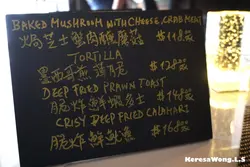 BAKED MUSHROOM WITH CHEESE, CRAB MEAT
焗芝士蟹肉 $118
TORTILLA
墨西哥煎 $128
DEEP FRIED PRAWN TOAST
脆炸鮮蝦多士 $148
CRISY DEEP FRIED CALAMARI
脆炸鮮魷 $168
KeresaWong.I.S